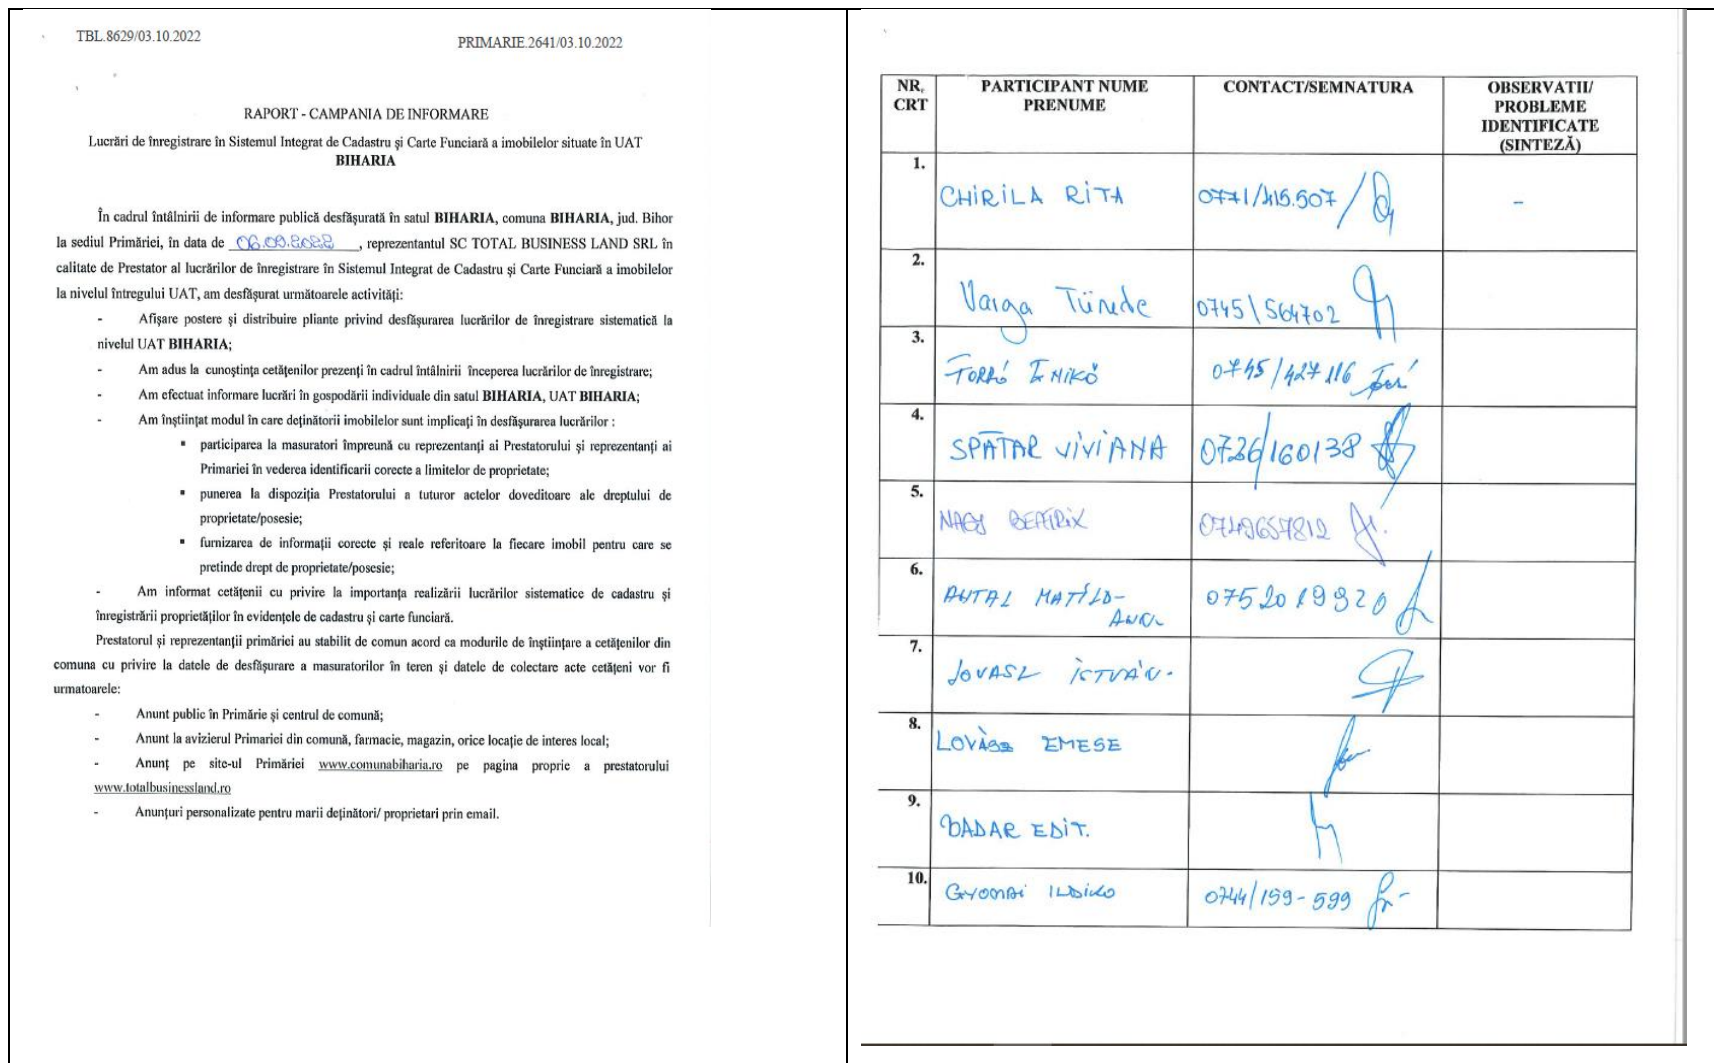 TBL.8629/03.10.2022
PRIMARIE.2641/03.10.2022
RAPORT - CAMPANIA DE INFORMARE
Lucrări de înregistrare în Sistemul Integrat de Cadastru și Carte Funciară a imobilelor situate în UAT
BIHARIA
În cadrul întâlnirii de informare publică desfășurată în satul BIHARIA, comuna BIHARIA, jud. Bihor
la sediul Primăriei, în data de 06.09.2022, reprezentantul SC TOTAL BUSINESS LAND SRL în
calitate de Prestator al lucrărilor de înregistrare în Sistemul Integrat de Cadastru și Carte Funciară a imobilelor
la nivelul întregului UAT, am desfășurat următoarele activități:
- Afișare postere și distribuire pliante privind desfășurarea lucrărilor de înregistrare sistematică la
nivelul UAT BIHARIA;
- Am adus la cunoștința cetățenilor prezenți în cadrul întâlnirii începerea lucrărilor de înregistrare;
- Am efectuat informare lucrări în gospodării individuale din satul BIHARIA, UAT BIHARIA;
- Am înștiințat modul în care deținătorii imobilelor sunt implicați în desfășurarea lucrărilor :
▪ participarea la masuratori împreună cu reprezentanți ai Prestatorului și reprezentanți ai
Primariei în vederea identificarii corecte a limitelor de proprietate;
▪ punerea la dispoziția Prestatorului a tuturor actelor doveditoare ale dreptului de
proprietate/posesie;
▪ furnizarea de informații corecte și reale referitoare la fiecare imobil pentru care se
pretinde drept de proprietate/posesie;
- Am informat cetățenii cu privire la importanța realizării lucrărilor sistematice de cadastru și
înregistrării proprietăților în evidențele de cadastru și carte funciară.
Prestatorul și reprezentanții primăriei au stabilit de comun acord ca modurile de înștiințare a cetățenilor din
comuna cu privire la datele de desfășurare a masuratorilor în teren și datele de colectare acte cetățeni vor fi
urmatoarele:
- Anunt public în Primărie și centrul de comună;
- Anunt la avizierul Primariei din comună, farmacie, magazin, orice locație de interes local;
- Anunț pe site-ul Primăriei www.comunabiharia.ro pe pagina proprie a prestatorului
www.totalbusinessland.ro
- Anunțuri personalizate pentru marii deținători/ proprietari prin email.
NR. CRT
PARTICIPANT NUME PRENUME
CONTACT/SEMNATURA
OBSERVATII/ PROBLEME IDENTIFICATE (SINTEZĂ)
1. CHIRILA RITA 0771/415.507 / -
2. Varga Tünde 0745/564702
3. FORRÓ ENIKŐ 0745/427116
4. SPĂTAR VIVIANA 0726/160138
5. NAGY BEATRIX 0749657812
6. ANTAL MATILD- 0752019920
7. ISTVÁN.
8. LOVÁSZ EMESE
9. BADAR EDIT.
10. GYOMAI ILDIKO 0744/159-599